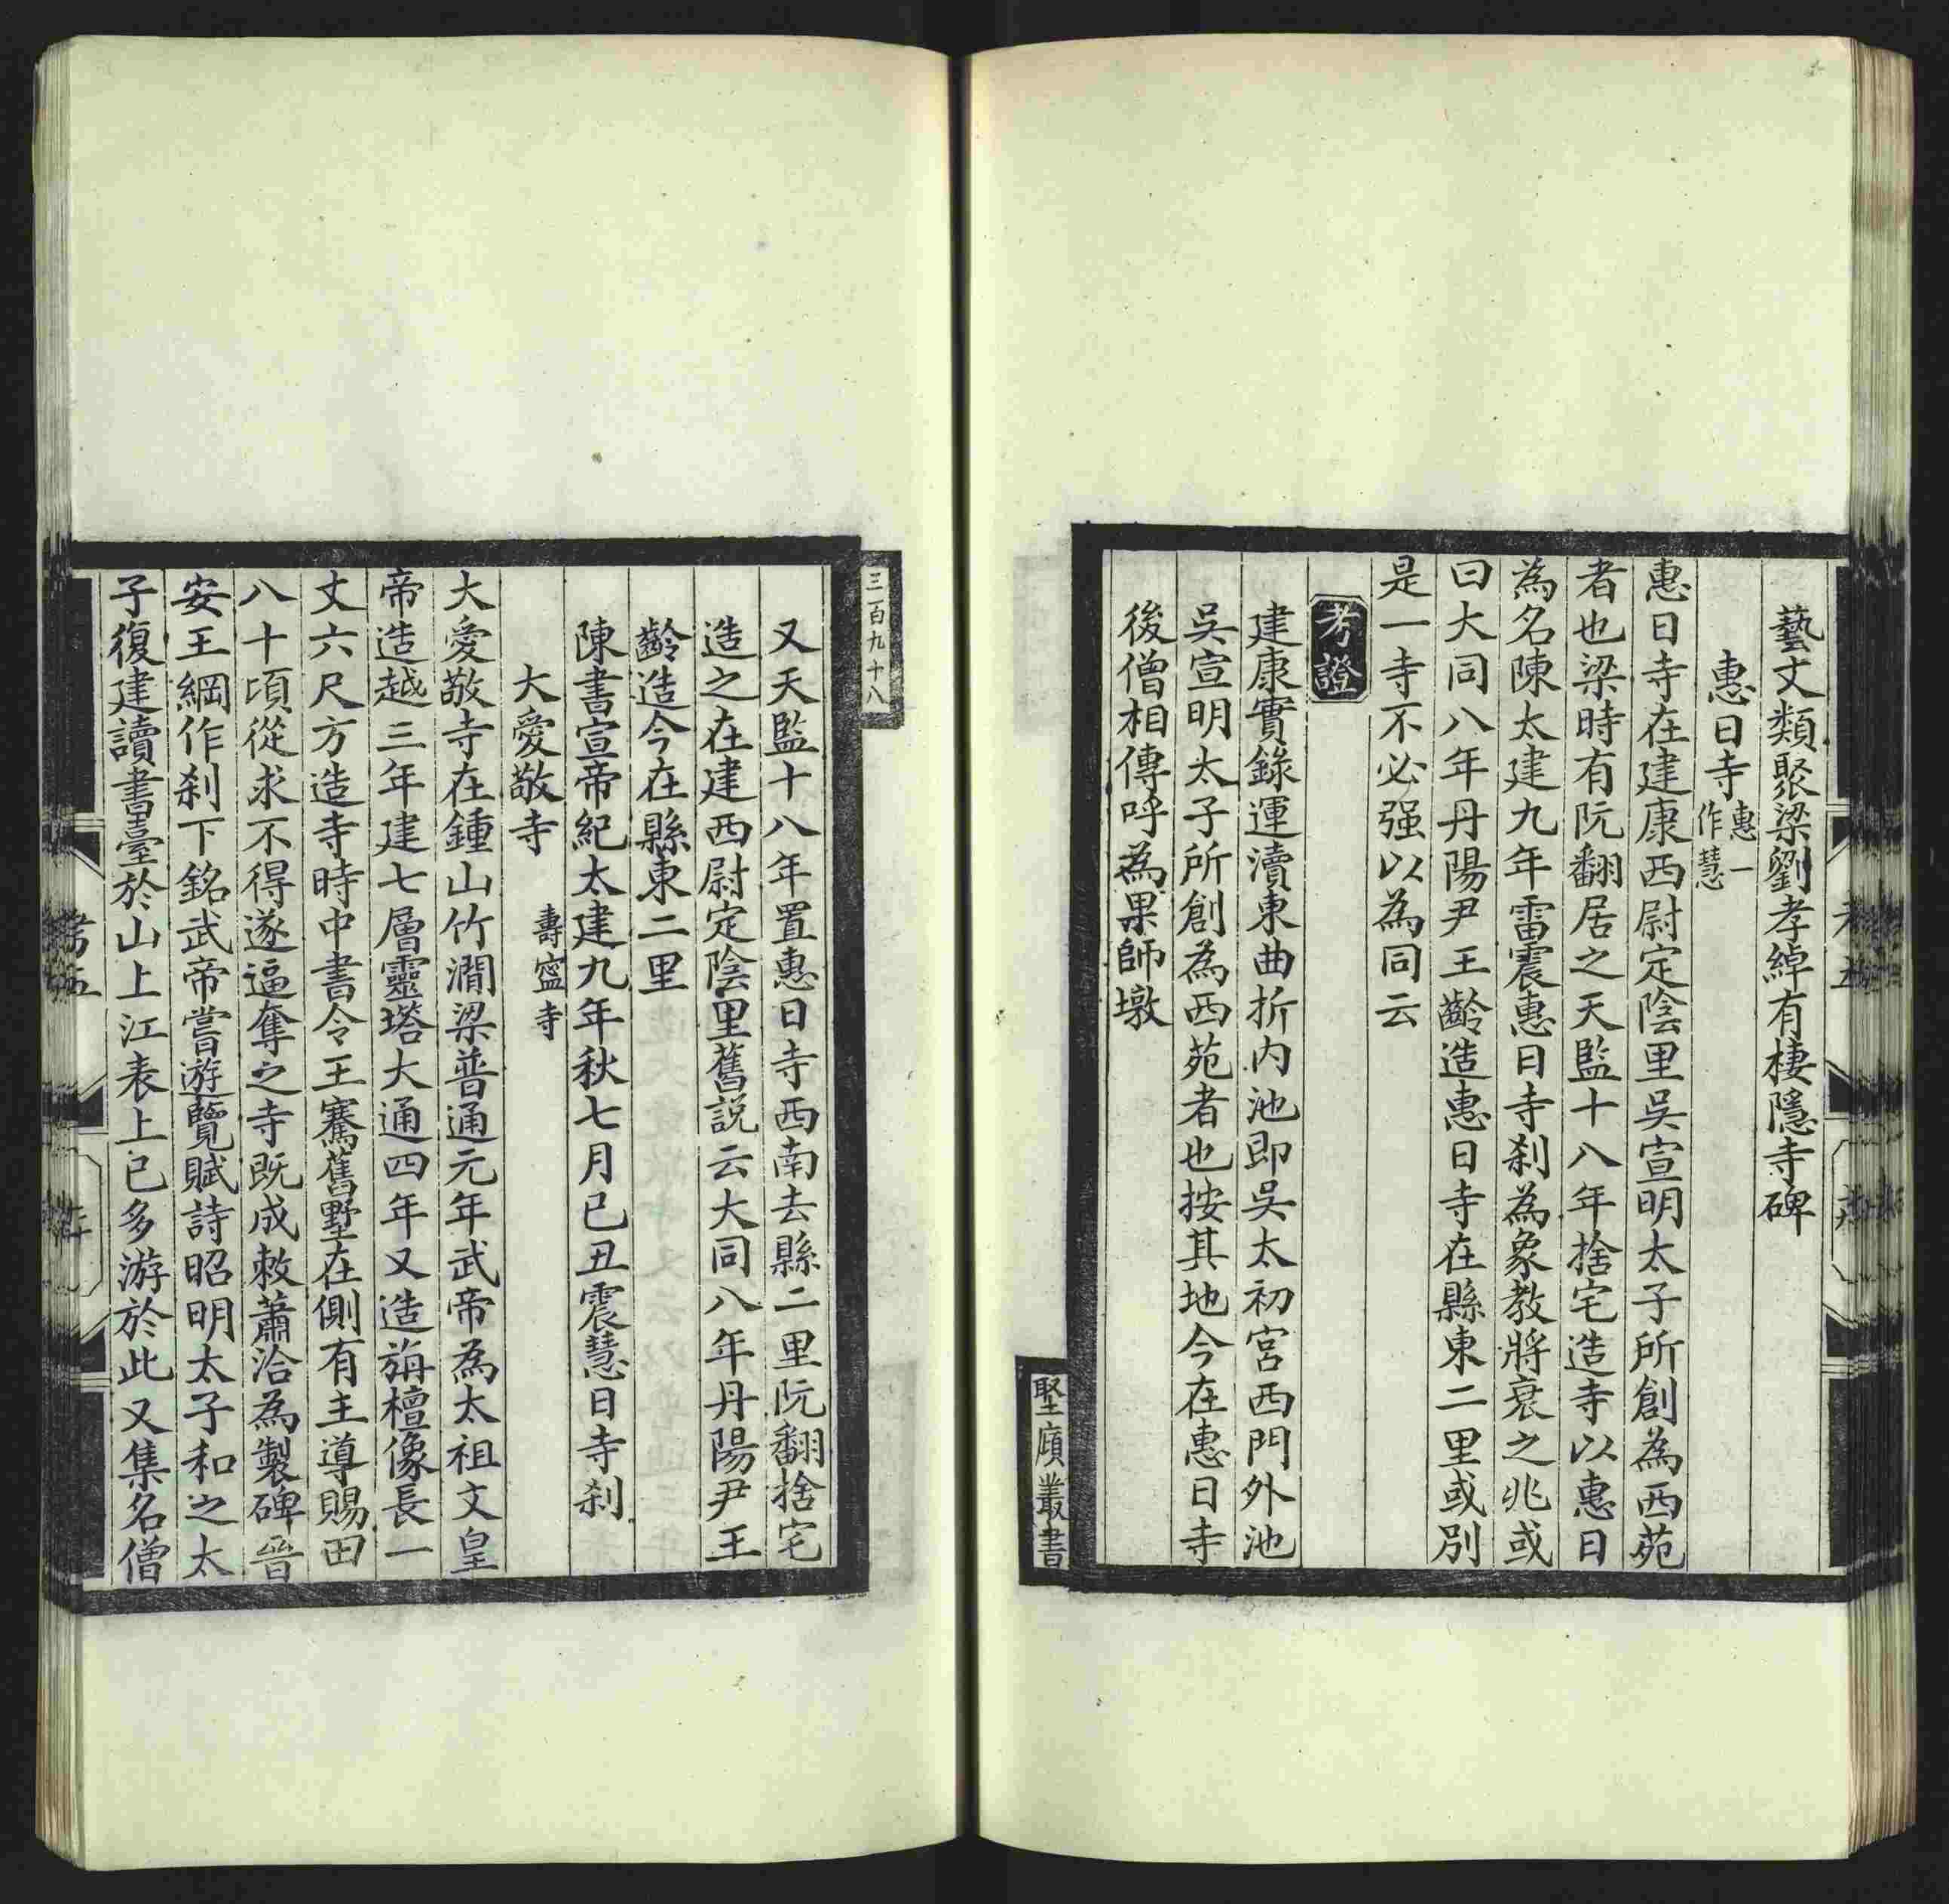 藝文類聚梁劉孝綽有棲隱寺碑
惠日寺惠一作慧
惠日寺在建康西尉定陰里吳宣明太子所創為西苑
者也梁時有阮翻居之天監十八年捨宅造寺以惠日
為名陳太建九年雷震惠日寺剎為象教將衰之兆或
曰大同八年丹陽尹王齡造惠日寺在縣東二里或別
是一寺不必强以為同云
考證
建康實錄運瀆東曲折内池即吳太初宮西門外池
吳宣明太子所創為西苑者也按其地今在惠日寺
後僧相傳呼為果師墩
堅廎叢書
三百九十八
又天監十八年置惠日寺西南去縣二里阮翻捨宅
造之在建西尉定陰里舊説云大同八年丹陽尹王
齡造今在縣東二里
陳書宣帝紀太建九年秋七月己丑震慧日寺剎
大愛敬寺　壽寍寺
大愛敬寺在鍾山竹澗梁普通元年武帝為太祖文皇
帝造越三年建七層靈塔大通四年又造旃檀像長一
丈六尺方造寺時中書令王騫舊墅在側有主導賜田
八十頃從求不得遂逼奪之寺既成敕蕭洽為製碑晉
安王綱作剎下銘武帝嘗游覽賦詩昭明太子和之太
子復建讀書臺於山上江表上巳多游於此又集名僧